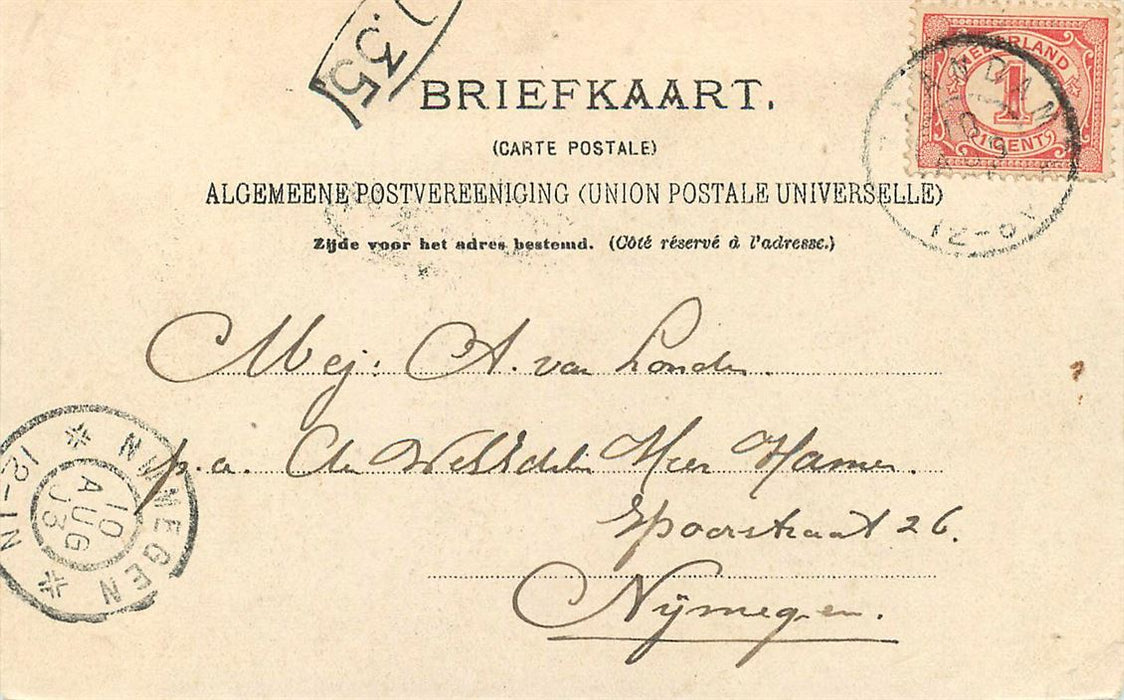 .35
BRIEFKAART.
(CARTE POSTALE)
ALGEMEENE POSTVEREENIGING (UNION POSTALE UNIVERSELLE)
Zijde voor het adres bestemd. (Côté réservé à l'adresse.)
NEDERLAND
1
1 CENT
12-
Mej: A. van Londen.
p.a. de WelEdelen Heer Hamer.
Spoorstraat 26.
Nijmegen.
NIJMEGEN
10
AUG
03
12-1N